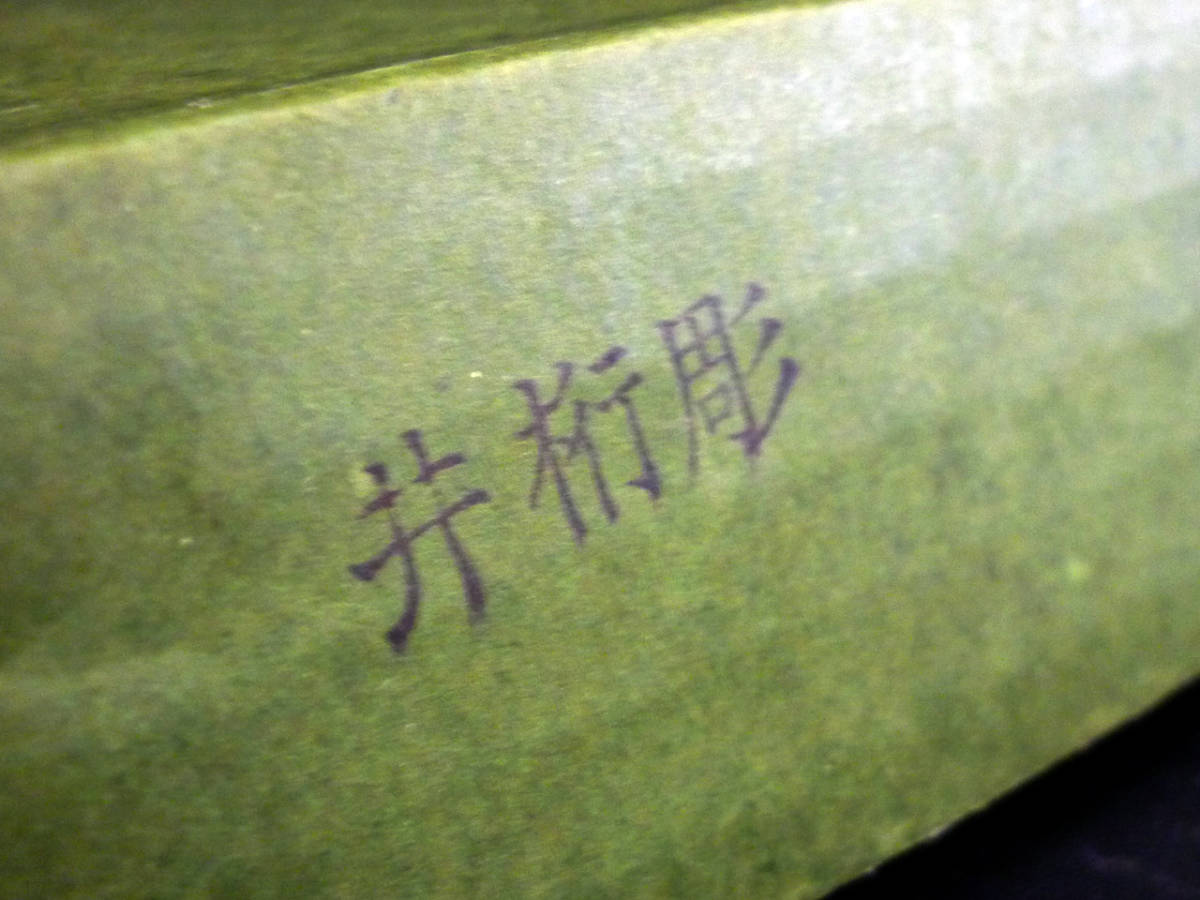 井桁彫